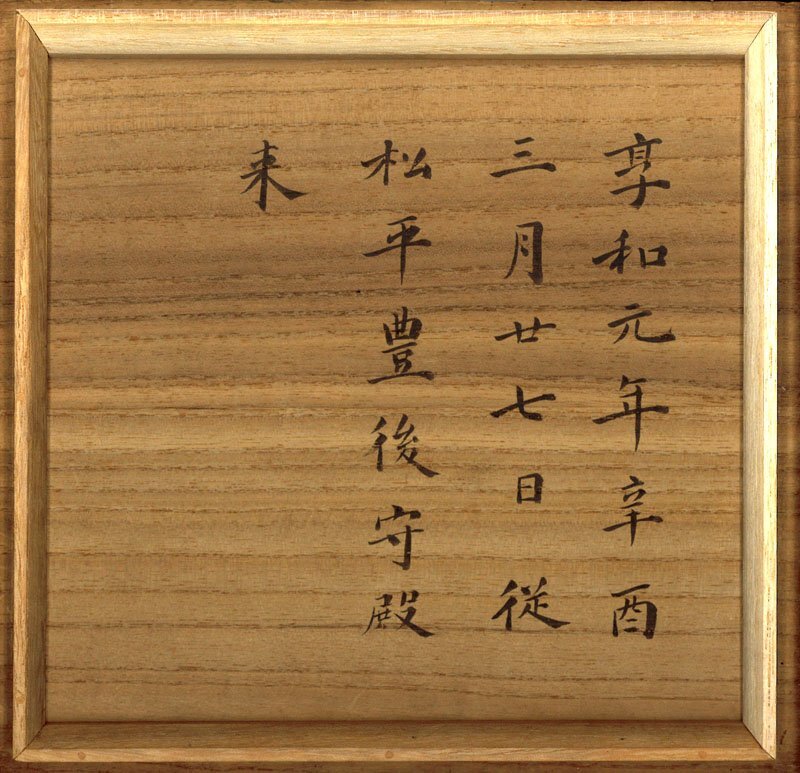 享和元年辛酉
三月廿七日従
松平豊後守殿
来